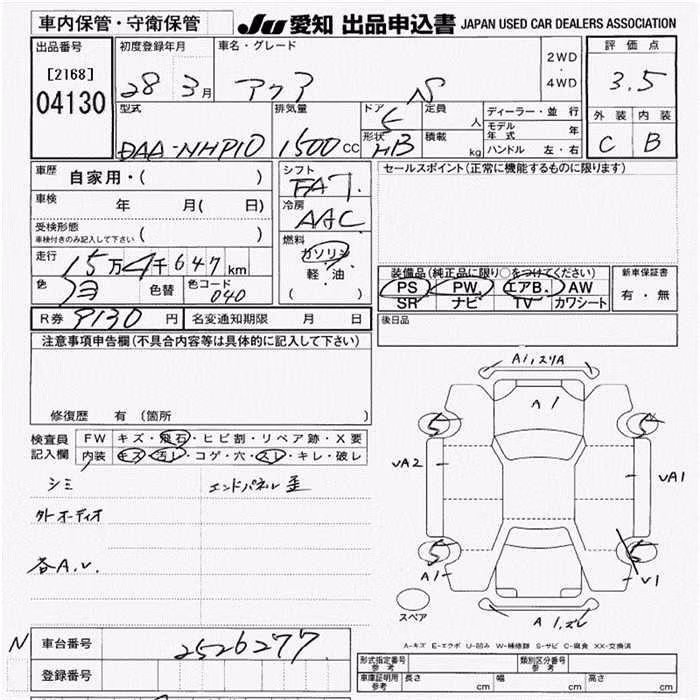 車内保管・守衛保管 JU 愛知 出品申込書 JAPAN USED CAR DEALERS ASSOCIATION
出品番号 初度登録年月 車名・グレード 2WD ・ 4WD 評価点
[2168] 04130 28 3月 アクア S 3.5
型式 排気量 ドア 定員 人 ディーラー・並行 外装 内装
モデル年式 年 C B
DAA-NHP10 1500cc 形状 HB 積載 kg ハンドル 左・右
車歴 自家用・( ) シフト FAT. セールスポイント(正常に機能するものに限ります)
車検 年 月( 日) 冷房 AAC
受検形態 ( )
車検付きのみ記入して下さい
燃料 ガソリン
走行 15万4千647km 軽・油 装備品(純正品に限り○をつけてください) 新車保証書
色 色替 色コード 040 ( ) PS PW エアB. AW 有・無
SR ナビ TV カワシート
R券 9130円 名変通知期限 月 日 後日品
注意事項申告欄(不具合内容等は具体的に記入して下さい)
A1,スリA
A1
S S
修復歴 有(箇所 )
検査員記入欄 FW キズ・飛石・ヒビ割・リペア跡・X要
内装 キズ・汚レ・コゲ・穴・スレ・キレ・破レ
UA2 UA1
シミ エンドパネル歪
外オーディオ
S S
各A.U. A1 U1
スペア
A1,ズレ
N 車台番号 2526277
A-キズ E-エクボ U-凹み W-補修跡 S-サビ C-腐食 XX-交換済
登録番号 形式指定番号 参考 類別区分番号 参考
車庫証明用 参考 長さ cm 幅 cm 高さ cm